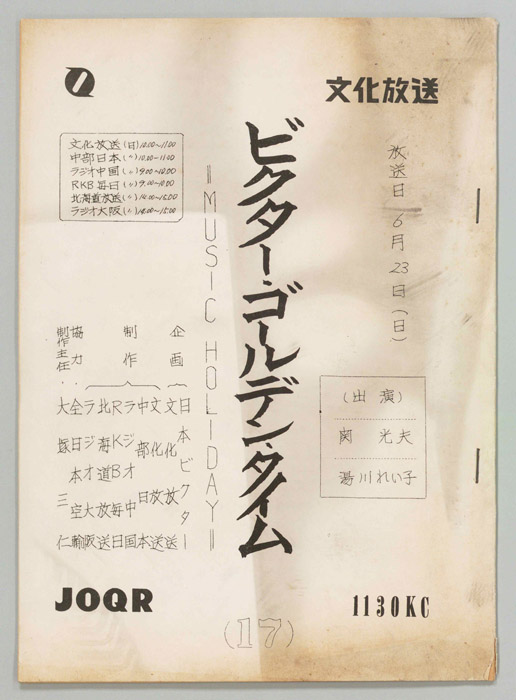 文化放送
放送日 6月23日(日)
(出演)
関 光夫
湯川れい子
ビクター・ゴールデン・タイム
=MUSIC HOLIDAY=
文化放送(日)10.00~11.00
中部日本(〃)10.00~11.00
ラジオ中国(〃)9.00~10.00
RKB毎日(〃)9.00~10.00
北海道放送(〃)14.00~15.00
ラジオ大阪(〃)14.00~15.00
企画
日本ビクター
文化放送
制作
文化放送
中部日本
ラジオ中国
RKB毎日
北海道放送
ラジオ大阪
協力:全日本空輸
制作主任:大塚三仁
JOQR
1130KC
(17)